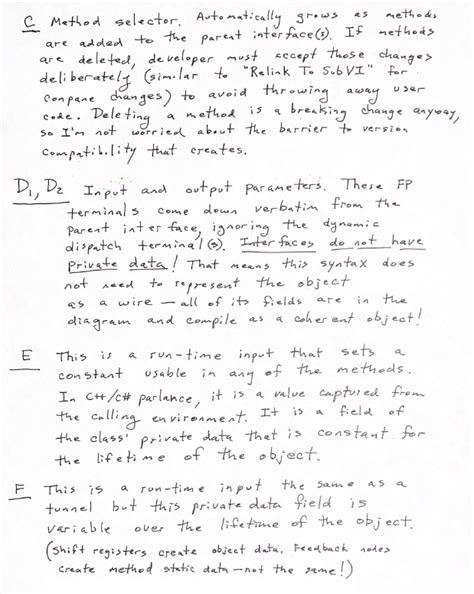 C Method selector. Automatically grows as methods
are added to the parent interface(s). If methods
are deleted, developer must accept those changes
deliberately (similar to "Relink To SubVI" for
conpane changes) to avoid throwing away user
code. Deleting a method is a breaking change anyway,
so I'm not worried about the barrier to version
compatibility that creates.
D1, D2 Input and output parameters. These FP
terminals come down verbatim from the
parent interface, ignoring the dynamic
dispatch terminal(s). Interfaces do not have
private data! That means this syntax does
not need to represent the object
as a wire — all of its fields are in the
diagram and compile as a coherent object!
E This is a run-time input that sets a
constant usable in any of the methods.
In C++/C# parlance, it is a value captured from
the calling environment. It is a field of
the class' private data that is constant for
the lifetime of the object.
F This is a run-time input the same as a
tunnel but this private data field is
variable over the lifetime of the object.
(Shift registers create object data. Feedback nodes
create method static data — not the same!)